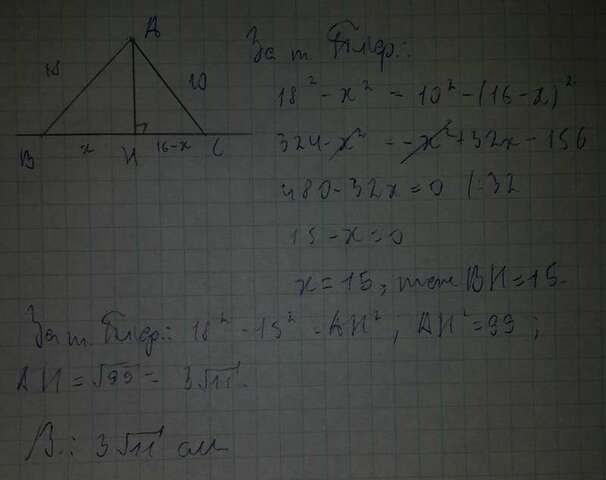 A
18
10
B
x
H
16-x
C
За т. Піф.:
18² - x² = 10² - (16-x)²
324 - x² = -x² + 32x - 156
480 - 32x = 0 /:32
15 - x = 0
x = 15, тож BH = 15.
За т. Піф.: 18² - 15² = AH²; AH² = 99;
AH = √99 = 3√11.
В.: 3√11 см